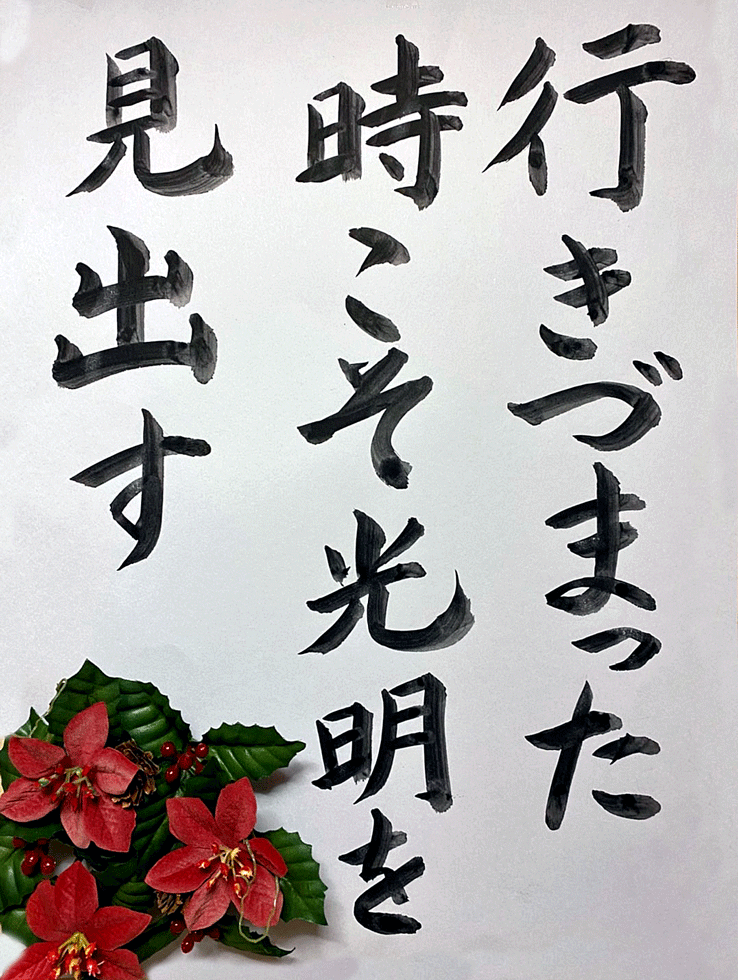 行きづまった
時こそ光明を
見出す